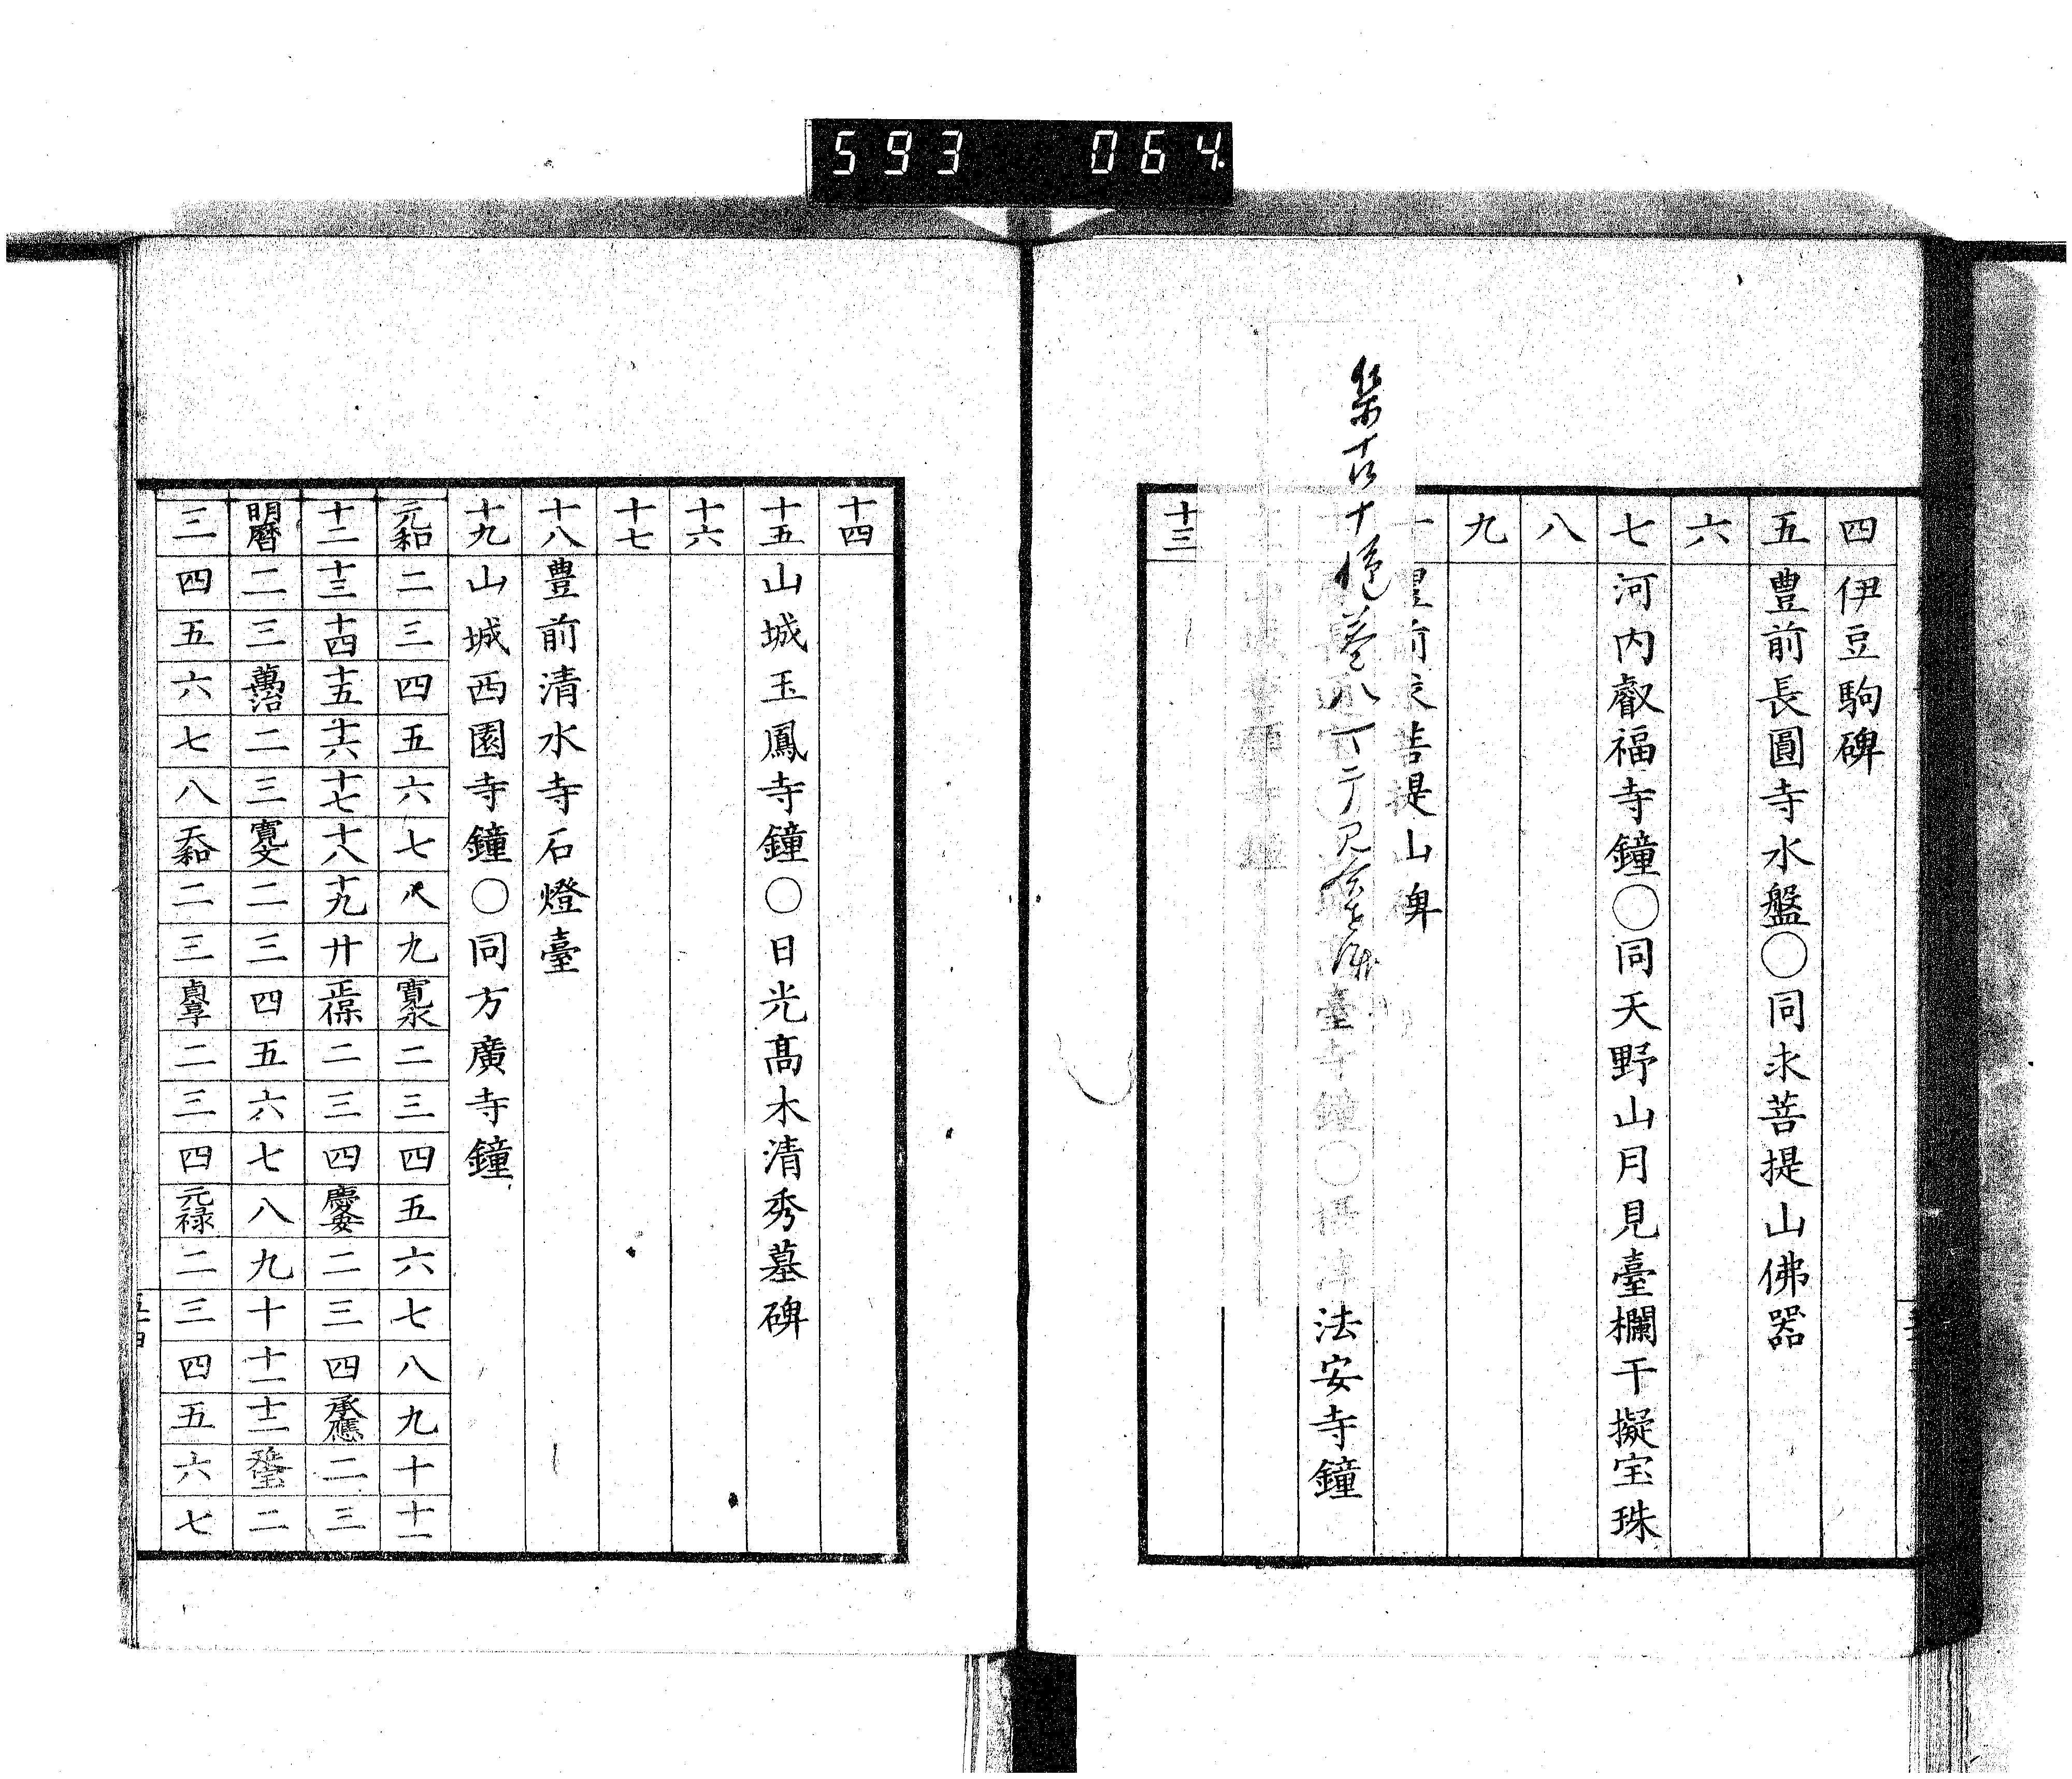 593 064
四 伊豆駒碑
五 豊前長圓寺水盤〇同求菩提山佛器
六
七 河内叡福寺鐘〇同天野山月見臺欄干擬宝珠
八
九
菩提山
臺寺鐘〇攝津法安寺鐘
十三
十四
十五 山城玉鳳寺鐘〇日光髙木清秀墓碑
十六
十七
十八 豊前清水寺石燈臺
十九 山城西園寺鐘〇同方廣寺鐘
元和 二 三 四 五 六 七 八 九 寛永 二 三 四 五 六 七 八 九 十 十一
十二 十三 十四 十五 十六 十七 十八 十九 廾 正保 二 三 四 慶安 二 三 四 承應 二 三
明暦 二 三 萬治 二 三 寛文 二 三 四 五 六 七 八 九 十 十一 十二 延宝 二
三 四 五 六 七 八 天和 二 三 貞享 二 三 四 元禄 二 三 四 五 六 七